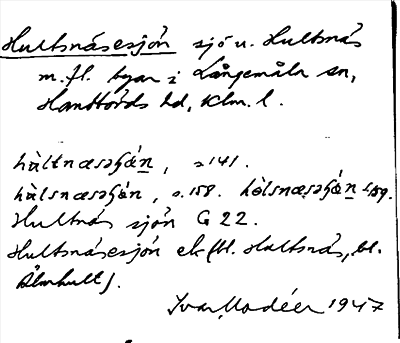 Hultsnäsesjön sjö u. Hultsnäs
m.fl. byar i Långemåla sn,
Handbörds hd, Klm. l.
hùltnæsəʃǿn, s. 141.
hùlsnæsəʃǿn, s. 158. hùlsnæsəʃǿn s. 159.
Hultnäs sjön G 22.
Hultsnäsesjön ek (bl. Hultsnäs, bl.
Älmhult).
Ivar Modéer 1947